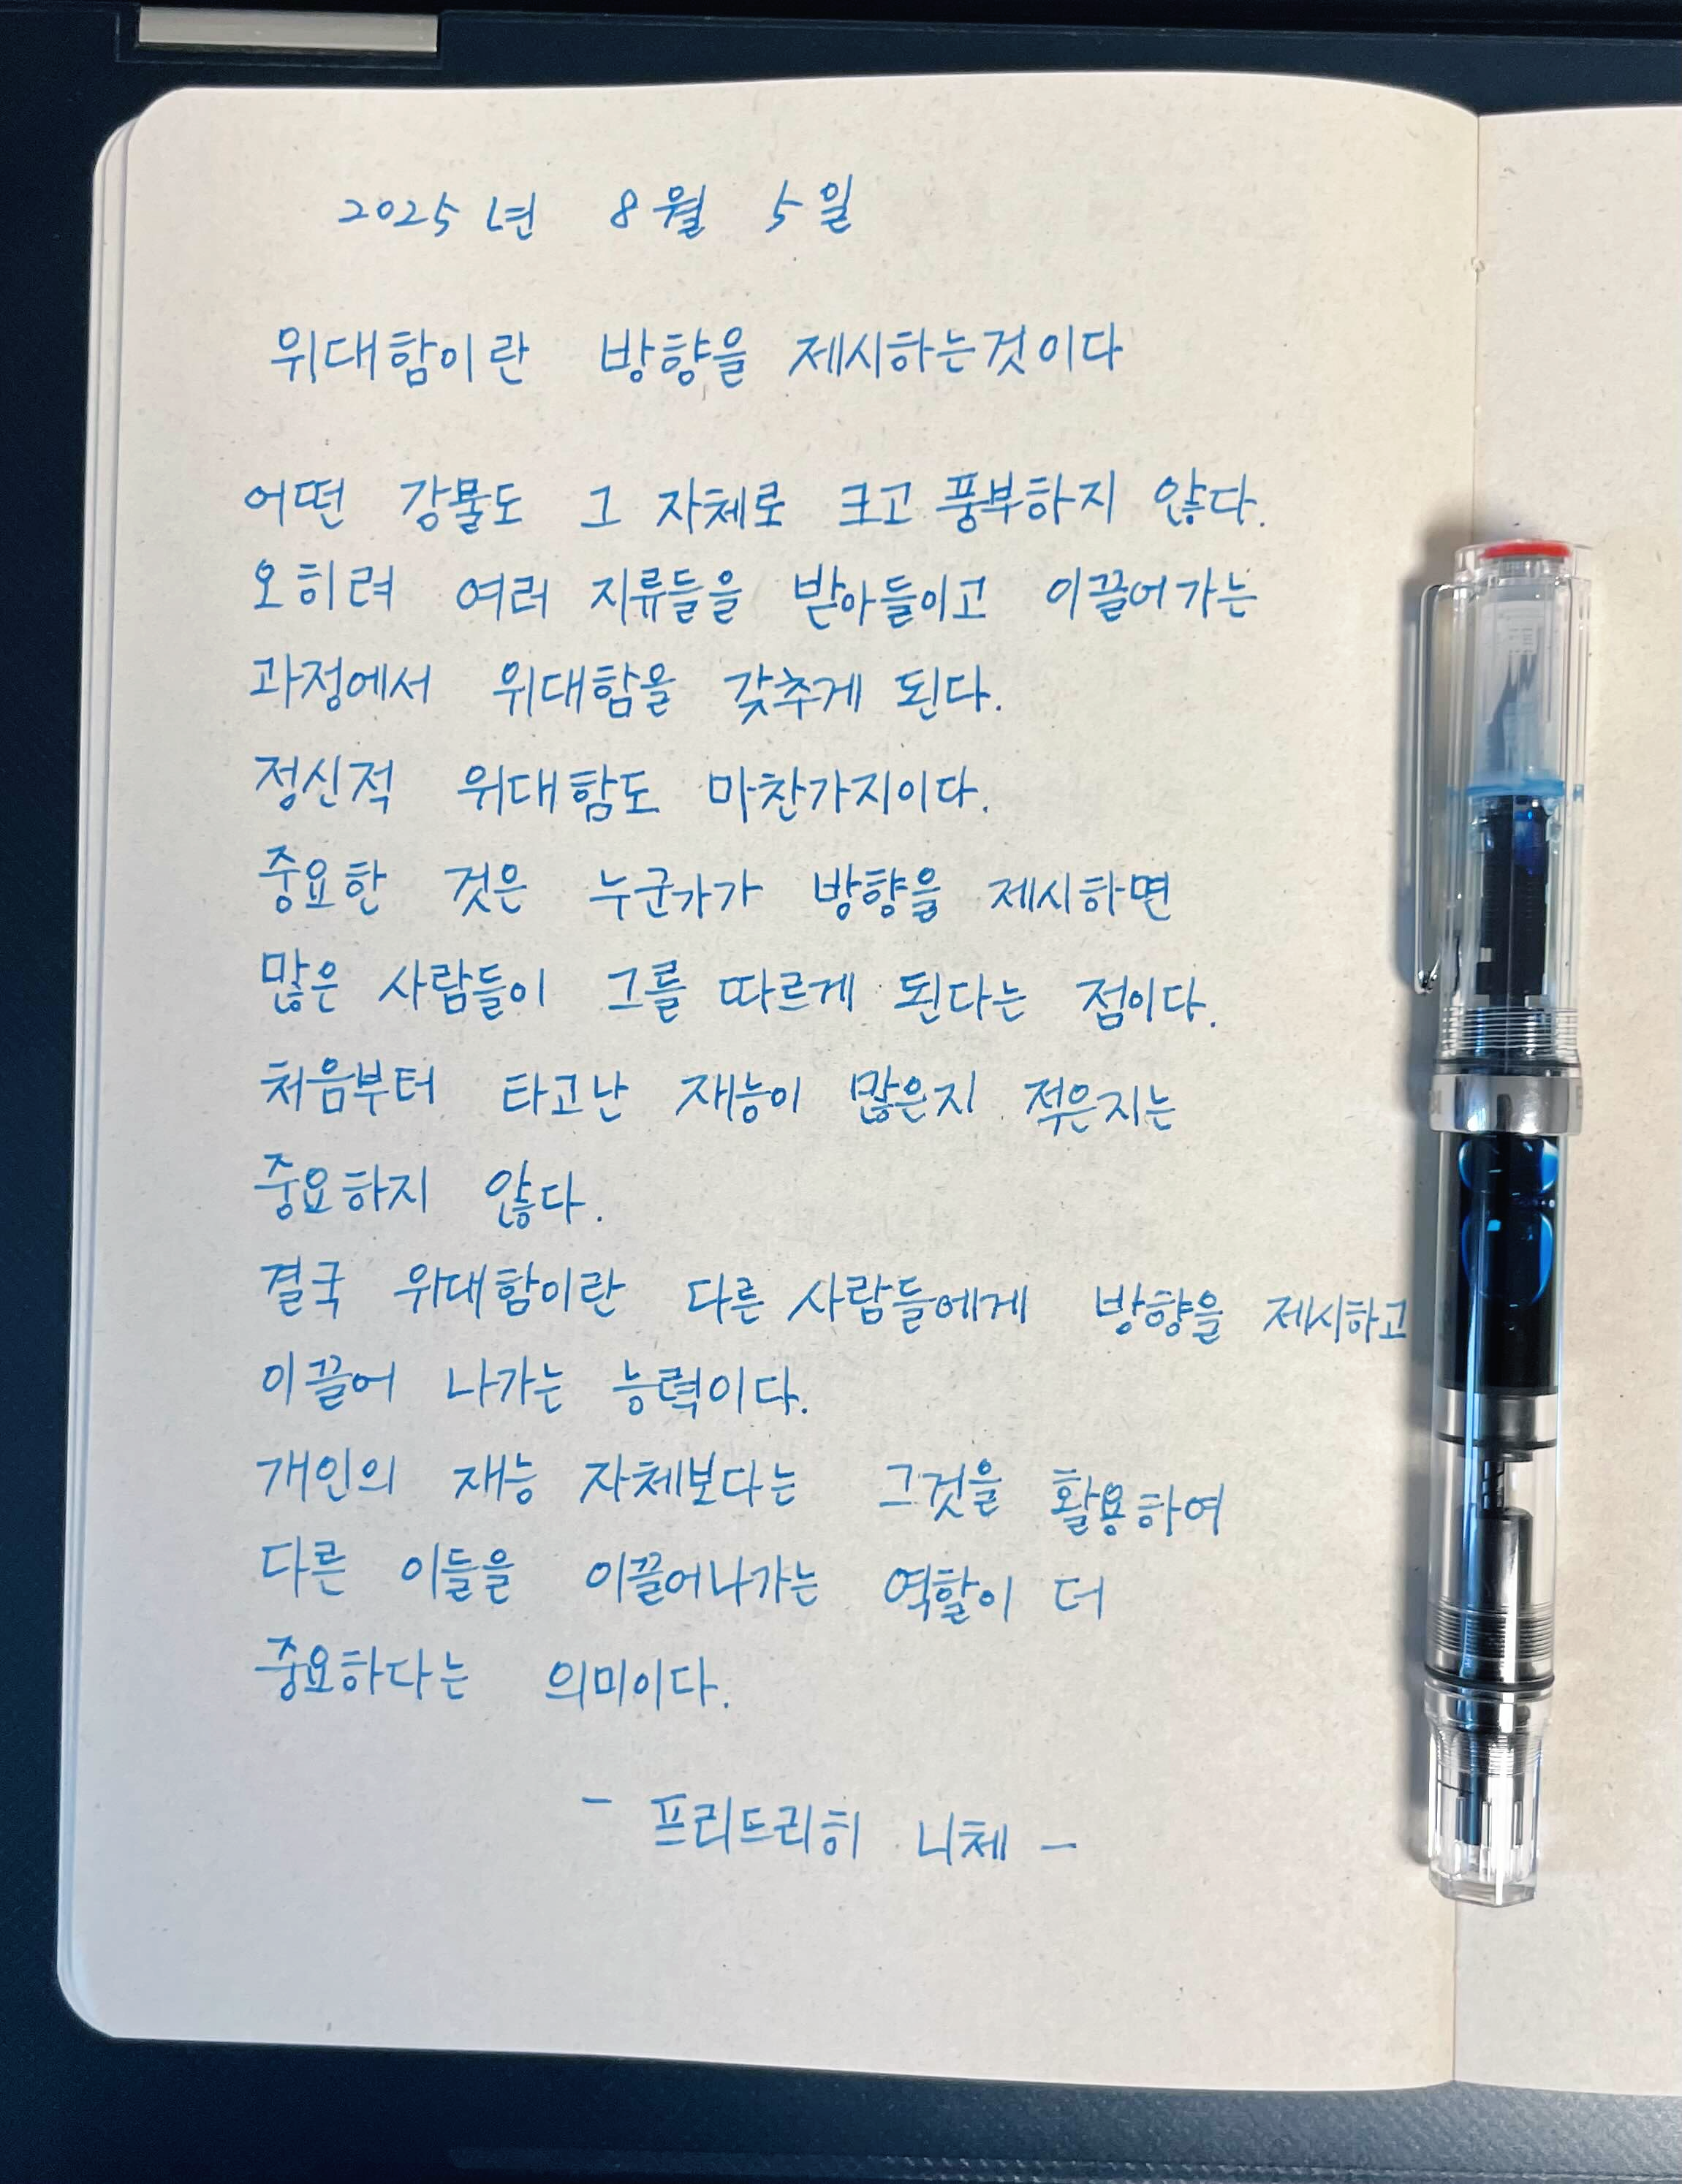 2025년 8월 5일
위대함이란 방향을 제시하는것이다
어떤 강물도 그 자체로 크고 풍부하지 않다.
오히려 여러 지류들을 받아들이고 이끌어가는
과정에서 위대함을 갖추게 된다.
정신적 위대함도 마찬가지이다.
중요한 것은 누군가가 방향을 제시하면
많은 사람들이 그를 따르게 된다는 점이다.
처음부터 타고난 재능이 많은지 적은지는
중요하지 않다.
결국 위대함이란 다른 사람들에게 방향을 제시하고
이끌어 나가는 능력이다.
개인의 재능 자체보다는 그것을 활용하여
다른 이들을 이끌어나가는 역할이 더
중요하다는 의미이다.
- 프리드리히 니체 -